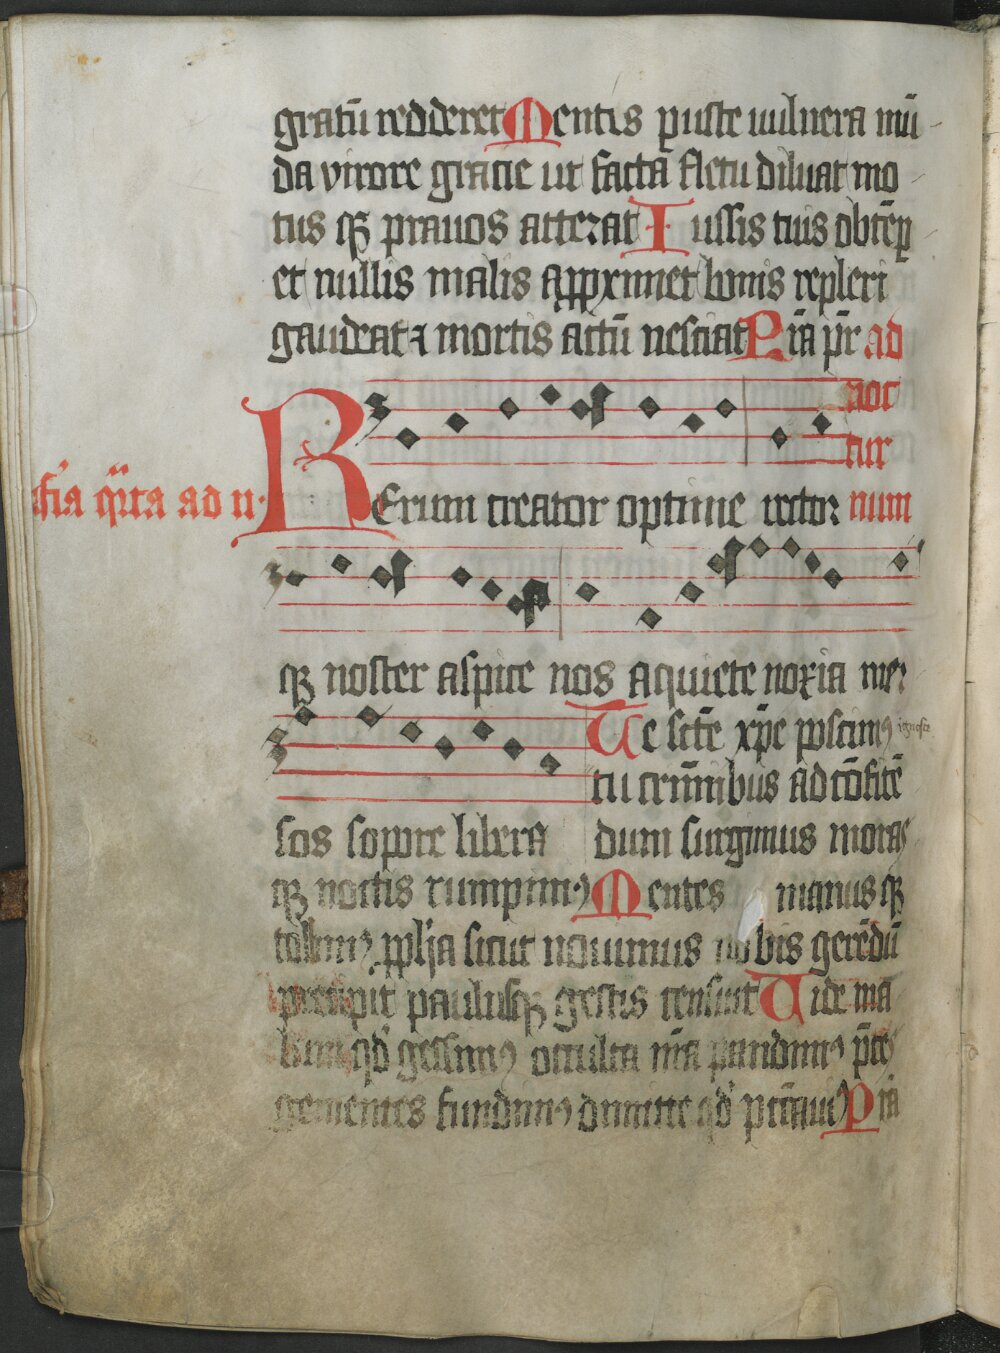 gratū redderet Mentis p̱uste uulnera mū
da virore gracie ut facta fletu diluat mo
tus qȝ prauos atterat Iussis tuis obtēp̱
et nullis malis app̱ximet bonis repleri
gaudeat ⁊ mortis actū nesciat P̄ia pr̄ ad
noc
tur
fīa q̄rta ad n.
RErum creator optime rector num
qȝ noster aspice nos aquiete noxia mer
Te sc̄tē xp̄e poscimꝰ ignosce
tu crīm̄ibus ad cōfitē
sos sopore libera dum surgimus moras
qȝ noctis rumpimꝰ Mentes manusqȝ
tollimꝰ p̱p̱h̄a sicut nouimus nobis gerēdū
precipit paulusqȝ gestis censuit Uide ma
lum qd̄ gessimꝰ occulta nr̄a pandimꝰ p̄ces
gementes fundimꝰ dimitte qd̄ peccauimꝰ P̄ia